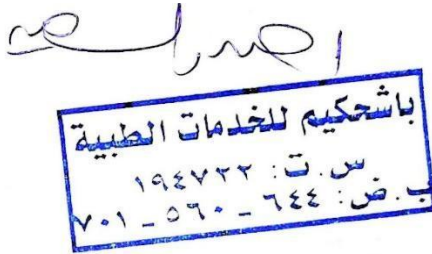 باشحكيم للخدمات الطبية
س.ت: ١٩٤٧٢٢
ب.ض: ٦٤٤ - ٥٦٠ - ٧٠١